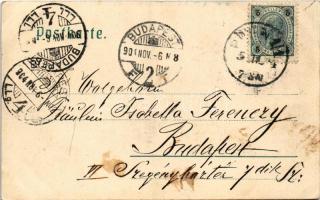 Postkarte.
BUDAPEST
901 NOV. - 6 N 8
2
BUDAPEST
Wolgeboren
Fräulein Isabella Ferenczy
Budapest
II Szegényháztér 7 dik sz: